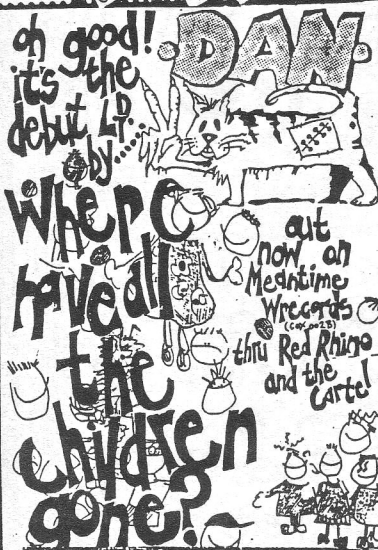 oh good!
it's the
debut L.P.
by.....
DAN
where
have all
the
children
gone?
out
now on
Meantime
Wrecords
(cox 002B)
thru Red Rhino
and the
Cartel